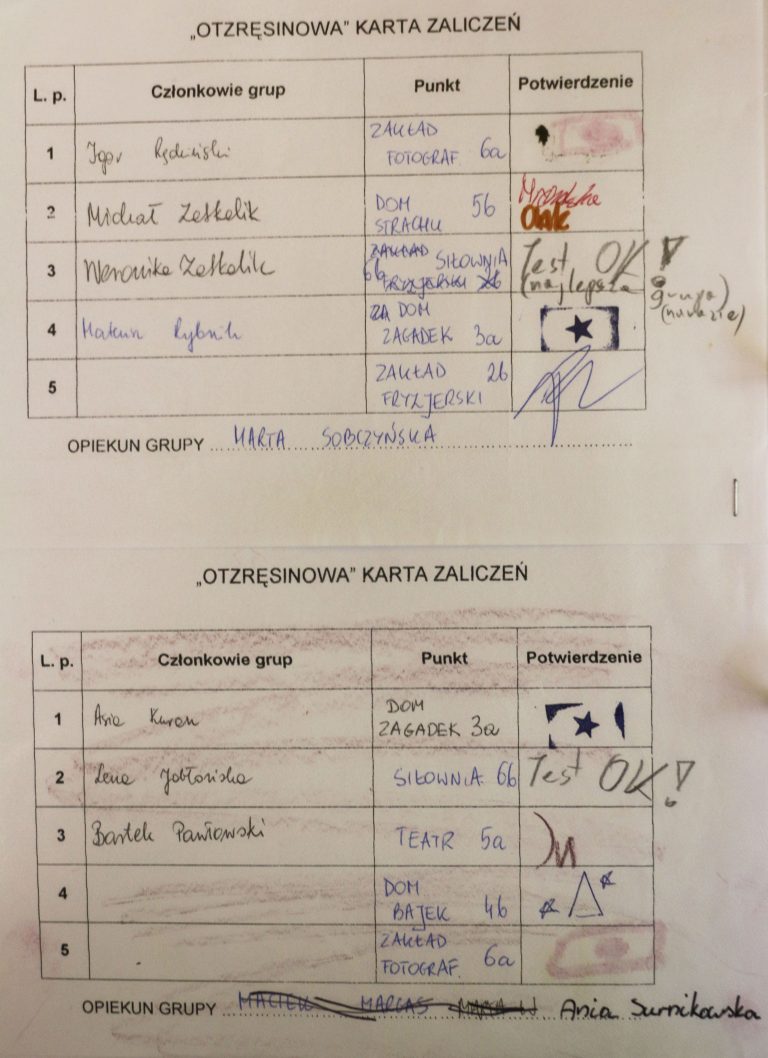 „OTZRĘSINOWA” KARTA ZALICZEŃ
L. p. Członkowie grup Punkt Potwierdzenie
1 Igor ZAKŁAD
FOTOGRAF 6a
2 Michał Zeskalik DOM 5b
STRACHU
Oak
3 Weronika Zeskalik ZAKŁAD SIŁOWNIA Test OK!
6b FRYZJERSKI (najlepsza grupa)
(na razie)
4 Rybnik ZA DOM
ZAGADEK 3a
5 ZAKŁAD 2b
FRYZJERSKI
OPIEKUN GRUPY MARTA SOBCZYŃSKA
„OTZRĘSINOWA” KARTA ZALICZEŃ
L. p. Członkowie grup Punkt Potwierdzenie
1 Asia Kuran DOM
ZAGADEK 3a
2 Lena Jabłońska SIŁOWNIA 6b Test OK!
3 Bartek Pawłowski TEATR 5a
4 DOM
BAJEK 4b
5 ZAKŁAD
FOTOGRAF. 6a
OPIEKUN GRUPY MACIEK MARCAS Ania Surnikowska